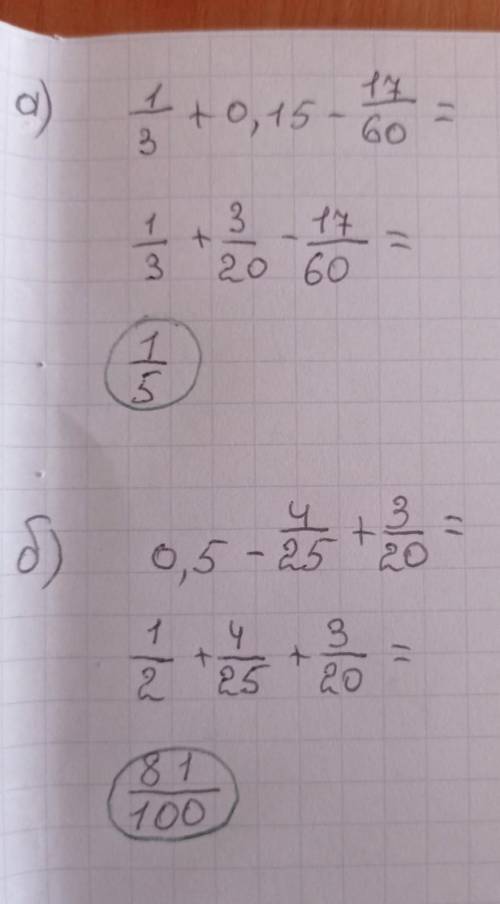 а) 1/3 + 0,15 - 17/60 =
1/3 + 3/20 - 17/60 =
1/5
б) 0,5 - 4/25 + 3/20 =
1/2 + 4/25 + 3/20 =
81/100